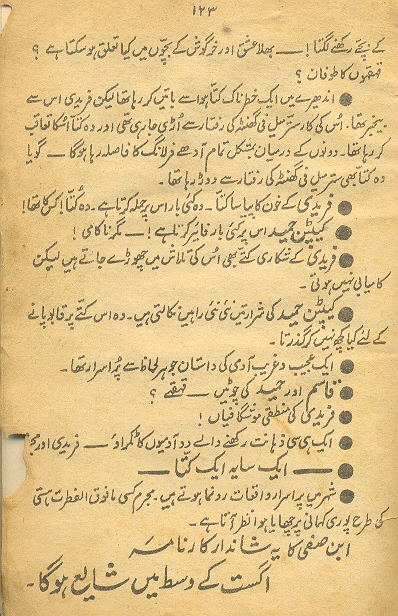 ۱۲۳
کے بچے رکھنے لگتا! —— بھلا عشق اور خرگوش کے بچوں میں کیا تعلق ہو سکتا ہے ؟
قہقہوں کا طوفان ؟
● اندھیرے میں ایک خطرناک کتا ہوا سے باتیں کر رہا تھا لیکن فریدی اس سے
بیخبر تھا۔ اُس کی کار ستر میل فی گھنٹہ کی رفتار سے اُڑی جا رہی تھی اور وہ کتا اسکا تعاقب
کر رہا تھا۔ دونوں کے درمیان بمشکل تمام آدھے فرلانگ کا فاصلہ رہا ہوگا —— گویا
وہ کتا بھی ستر میل فی گھنٹہ کی رفتار سے دوڑ رہا تھا۔
● فریدی کے خون کا پیاسا کتا۔ وہ کئی بار اس پر حملہ کرتا ہے۔ وہ کتا! کس کا تھا!
● کیپٹن حمید اس پر کئی بار فائر کرتا ہے! —— مگر ناکامی!
● فریدی کے شکاری کتے بھی اُس کی تلاش میں چھوڑے جاتے ہیں لیکن
کامیابی نہیں ہوتی۔
● کیپٹن حمید کی شرارتیں نئی نئی راہیں نکالتی ہیں۔ وہ اس کتے پر قابو پانے
کے لئے کیا کچھ نہیں کر گذرتا۔
● ایک عجیب و غریب آدمی کی داستان جو ہر لحاظ سے پُراسرار تھا۔
● قاسم اور حمید کی چوٹیں —— قہقہے ؟
● فریدی کی منطقی موشگافیاں!
● ایک ہی سی ذہانت رکھنے والے دو آدمیوں کا ٹکراؤ —— فریدی اور
● —— ایک سایہ ایک کتا ——
● شہر میں پراسرار واقعات رونما ہوتے ہیں۔ مجرم کسی مافوق الفطرت ہستی
کی طرح پوری کہانی پر چھایا ہوا نظر آتا ہے۔
ابن صفی کا یہ شاندار کارنامہ
اگست کے وسط میں شایع ہوگا۔